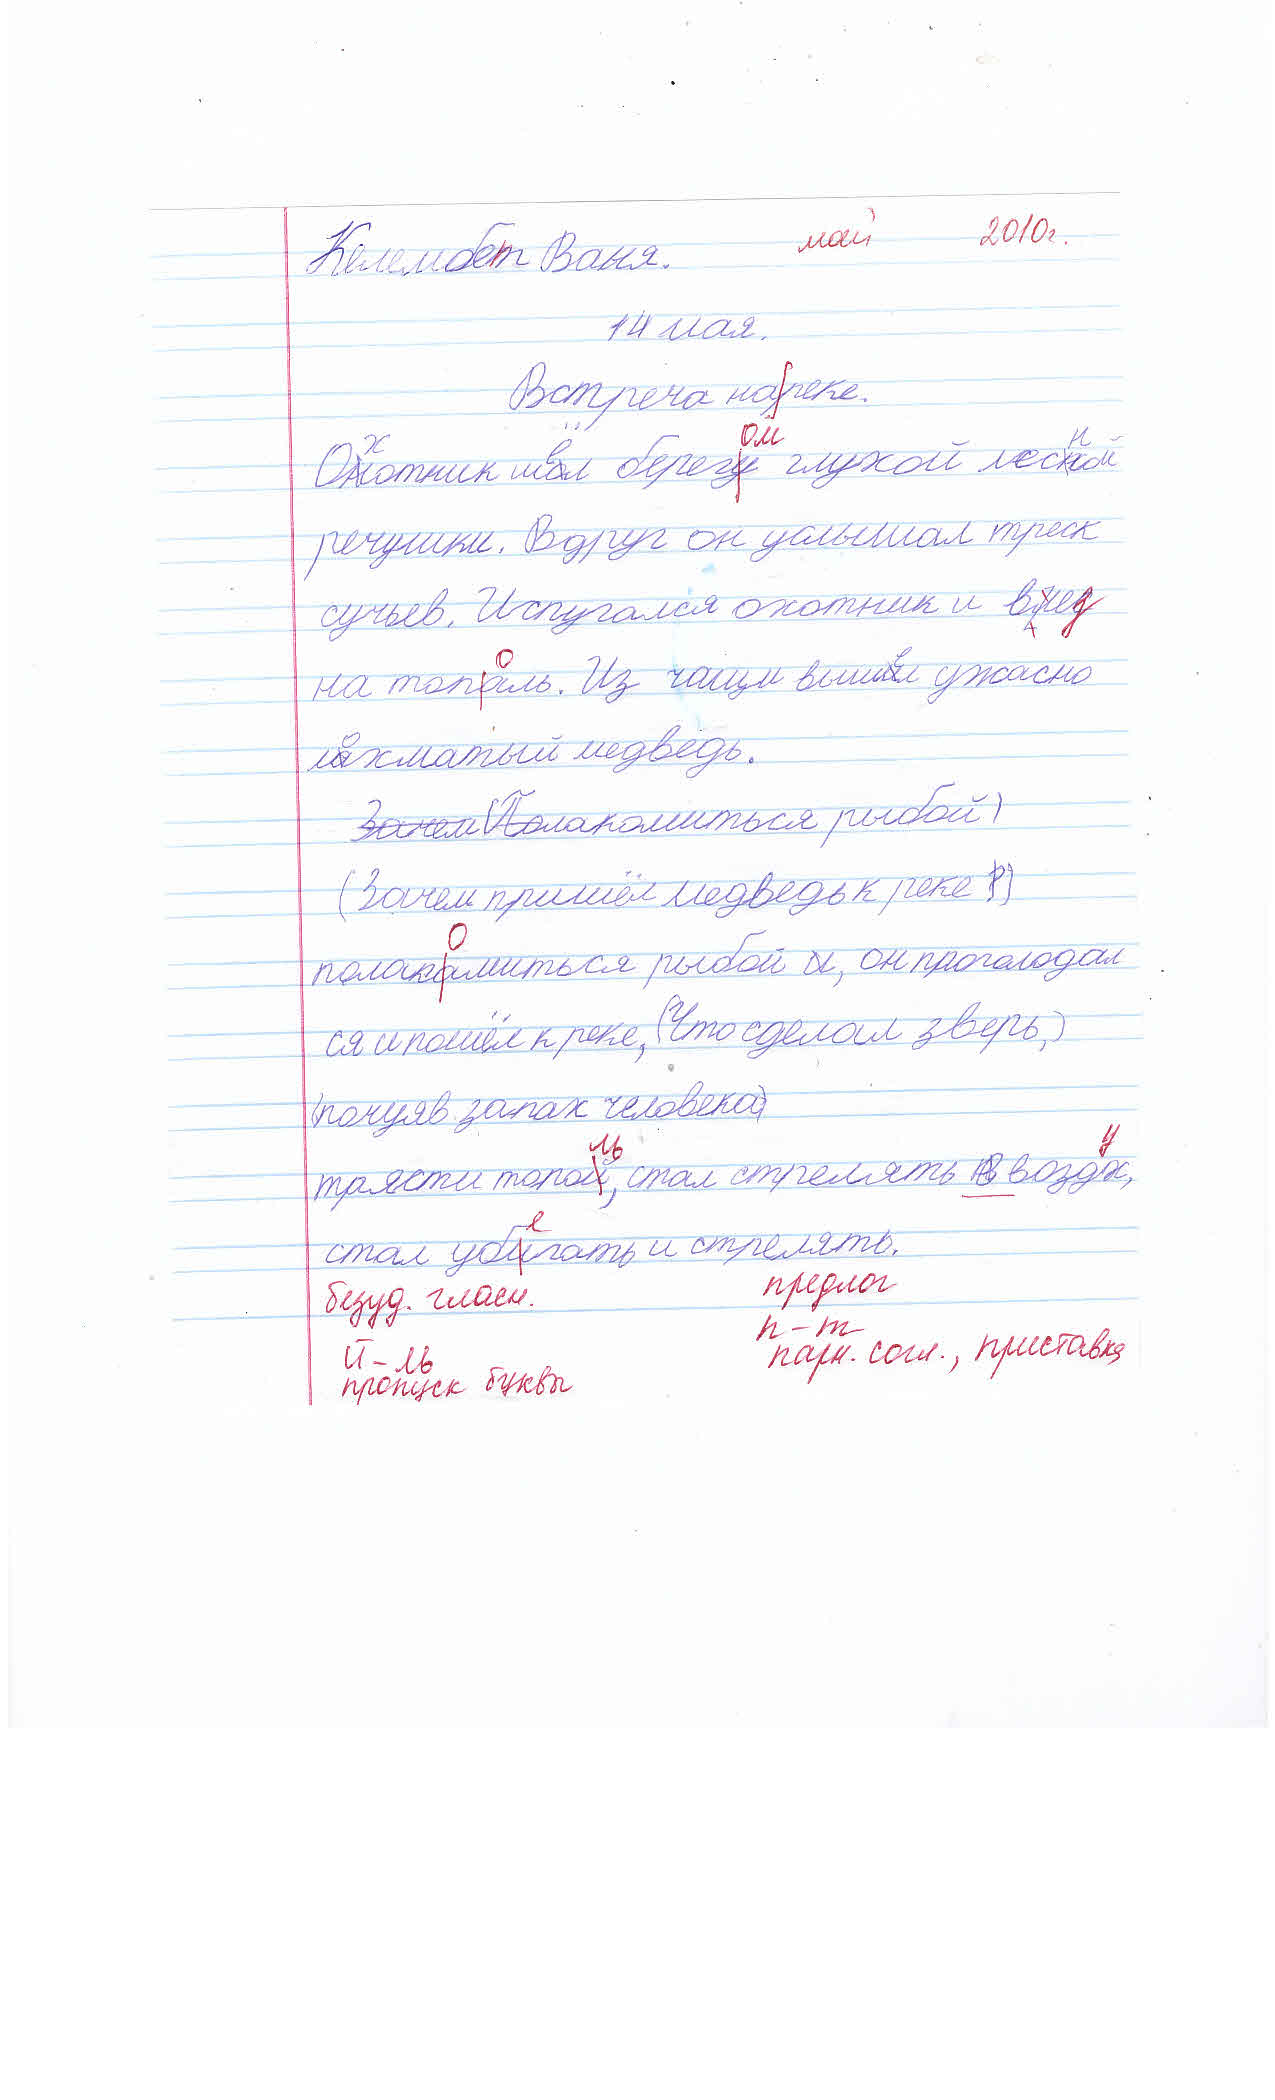 Келембет Ваня. май 2010г.
14 мая.
Встреча нареке.
Охотник шёл берегу ом глухой лесной
речушки. Вдруг он услышал треск
сучьев. Испугался охотник и
на топаль. о Из чащи вышел ужасно
лохматый медведь.
Зачем (Полакомиться рыбой)
(Зачем пришёл медведь к реке?)
полакамиться о рыбой и, он проголодал
ся и пошёл к реке, (Что сделал зверь,)
(почуяв запах человека)
трясти топой, ль стал стрелять в воздх, у
стал убигать е и стрелять.
безуд. гласн. предлог
й-ль п-т
пропуск буквы парн. согл., приставка